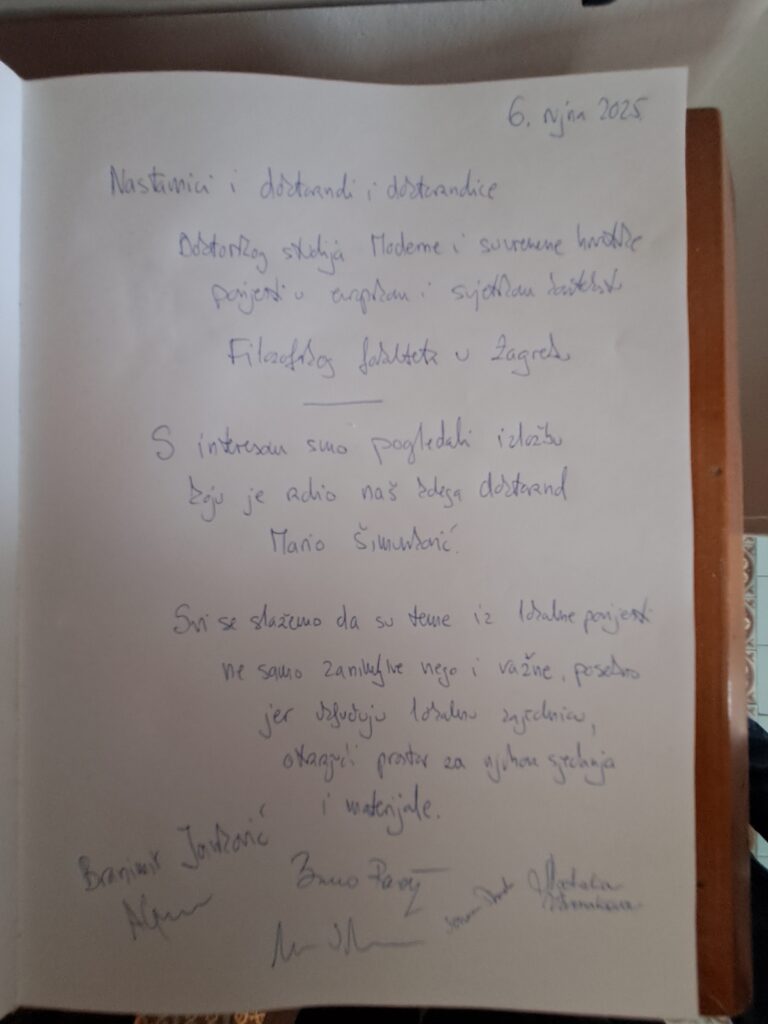 6. rujna 2025.
Nastavnici i doktorandi i doktorandice
Doktorskog studija Moderne i suvremene hrvatske
povijesti u europskom i svjetskom kontekstu
Filozofskog fakulteta u Zagrebu
S interesom smo pogledali izložbu
koju je radio naš kolega doktorand
Mario Šimunković.
Svi se slažemo da su teme iz lokalne povijesti
ne samo zanimljive nego i važne, posebno
jer uključuju lokalnu zajednicu,
otvarajući prostor za njihova sjećanja
i materijale.
Branimir Janković